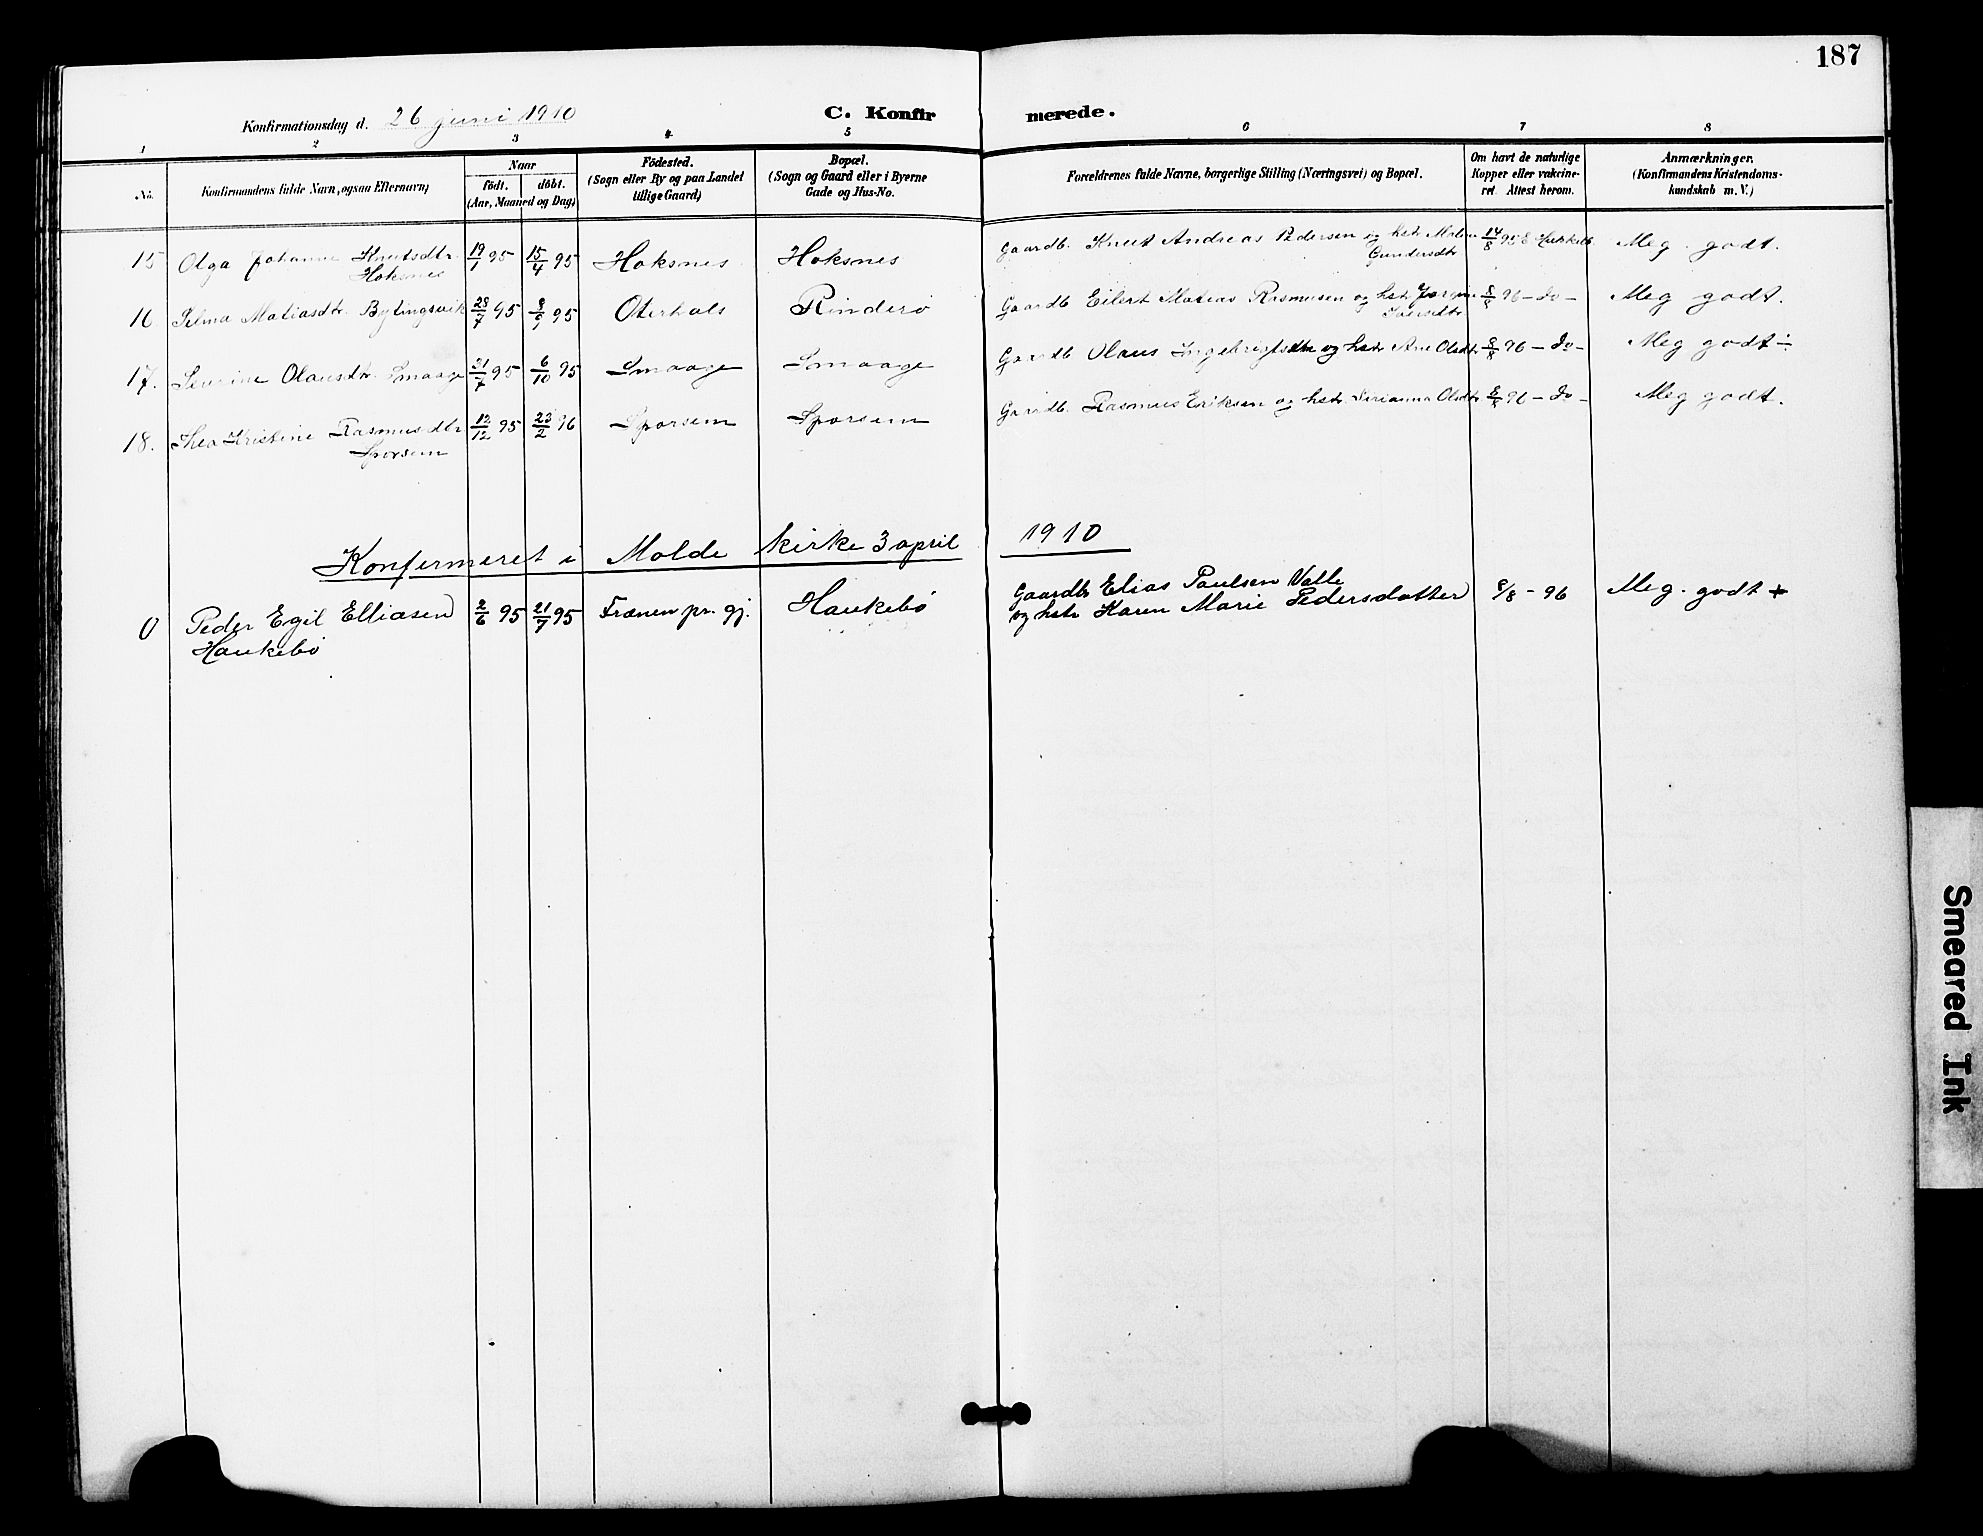 187
Konfirmationsdag d. 26 juni 1910
C. Konfir merede.
1 2 3 4 5 6 7 8
No.
Konfirmandens fulde Navn, ogsaa Efternavn)
Naar
födt. döbt.
(Aar, Maaned og Dag)
Födested.
(Sogn eller By og paa Landet
tillige Gaard)
Bopæl.
(Sogn og Gaard eller i Byerne
Gade og Hus-No.
Forældrenes fulde Navne, borgerlige Stilling (Næringsvei) og Bopæl.
Om havt de naturlige
Kopper eller vakcine-
ret. Attest herom.
Anmærkninger.
(Konfirmandens Kristendoms-
kundskab m. V.)
15 Olga Johanne Knutsdtr. 19/1 95 15/4 95 Hoksnes Hoksnes Gaardb. Knut Andreas Pedersen og hstr Malene 14/8 95 Meg. godt.
Hoksnes Gundersdtr
16 Selma Matiasdtr. Bylingsvik 28/7 95 8/9 95 Oterhals Rinderö Gaardb. Eilert Matias Rasmusen og hstr 8/8 96 - do - Meg godt.
17. Sevrine Olausdtr. Smaage 31/7 95 6/10 95 Smaage Smaage Gaardb. Olaus og hstr Ane Olsdtr 8/8 96 - do - Meg godt ÷
18. Thea Kristine Rasmusdtr 12/12 95 23/2 96 Sporsem Sporsem Gaardb. Rasmus Eriksen og hstr. Serianna Olsdtr 8/8 96 - do - Meg godt.
Sporsem
Konfermeret i Molde kirke 3 april 1910
0 Peder Egil Elliasen 2/6 95 21/7 95 Frænen pr. gj. Haukebö Gaardb Elias Paulsen Valle 8/8 - 96 Meg. godt +
Haukebö og hstr Karen Marie Pedersdatter
Smeared Ink